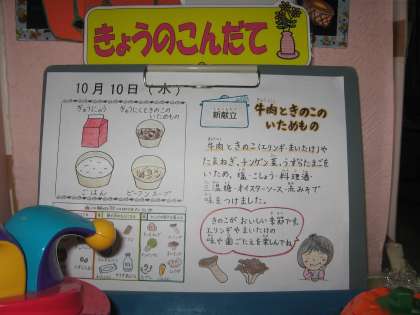 きょうのこんだて
10月10日(水)
ぎゅうにゅう
ぎゅうにくときのこの
いためもの
ごはん
ビーフンスープ
新献立
牛肉ときのこの
いためもの
牛肉ときのこ(エリンギ・まいたけ)や
たまねぎ、チンゲン菜、うずらたまごを
いため、塩・こしょう・料理酒・
三温糖・オイスターソース・赤みそで
味をつけました。
きのこがおいしい季節です。
エリンギやまいたけの
味や歯ごたえを楽しんでね♪